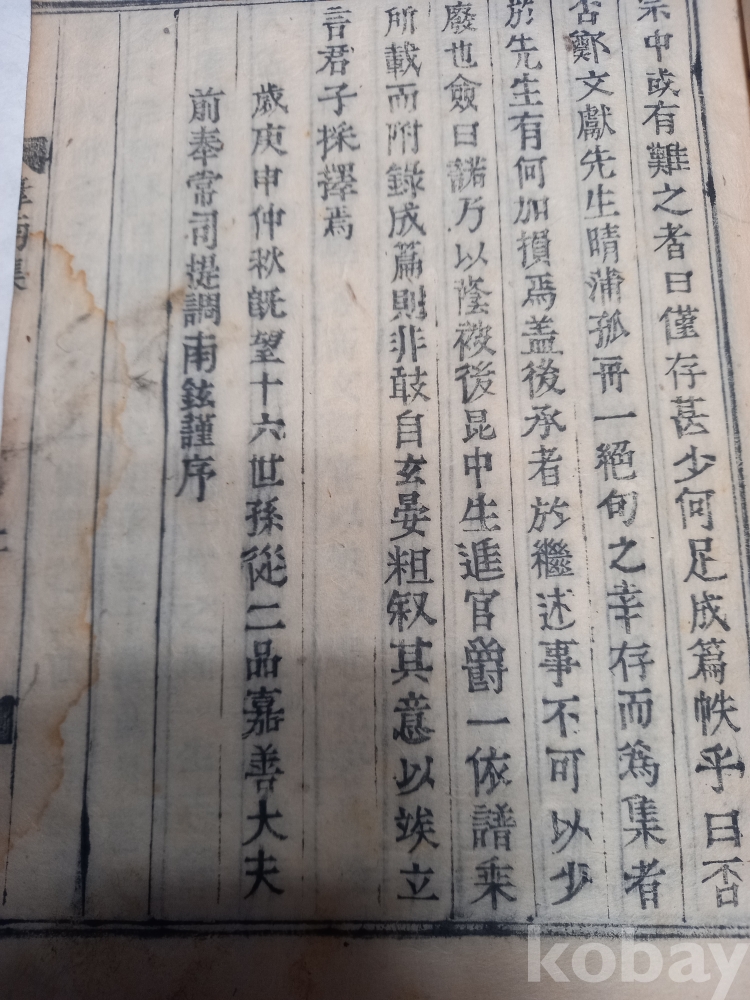 宗中或有難之者曰僅存甚少何足成篇帙乎曰否
否鄭文獻先生晴蒲孤冊一絕句之幸存而為集者
於先生有何加損焉盖後承者於繼述事不可以少
廢也僉曰諾乃以蔭被後昆中生進官爵一依譜乘
所載而附錄成篇則非敢自玄晏粗叙其意以竢立
言君子採擇焉
歲庚申仲秋旣望十六世孫從二品嘉善大夫
前奉常司提調南鉉謹序
集
kobay